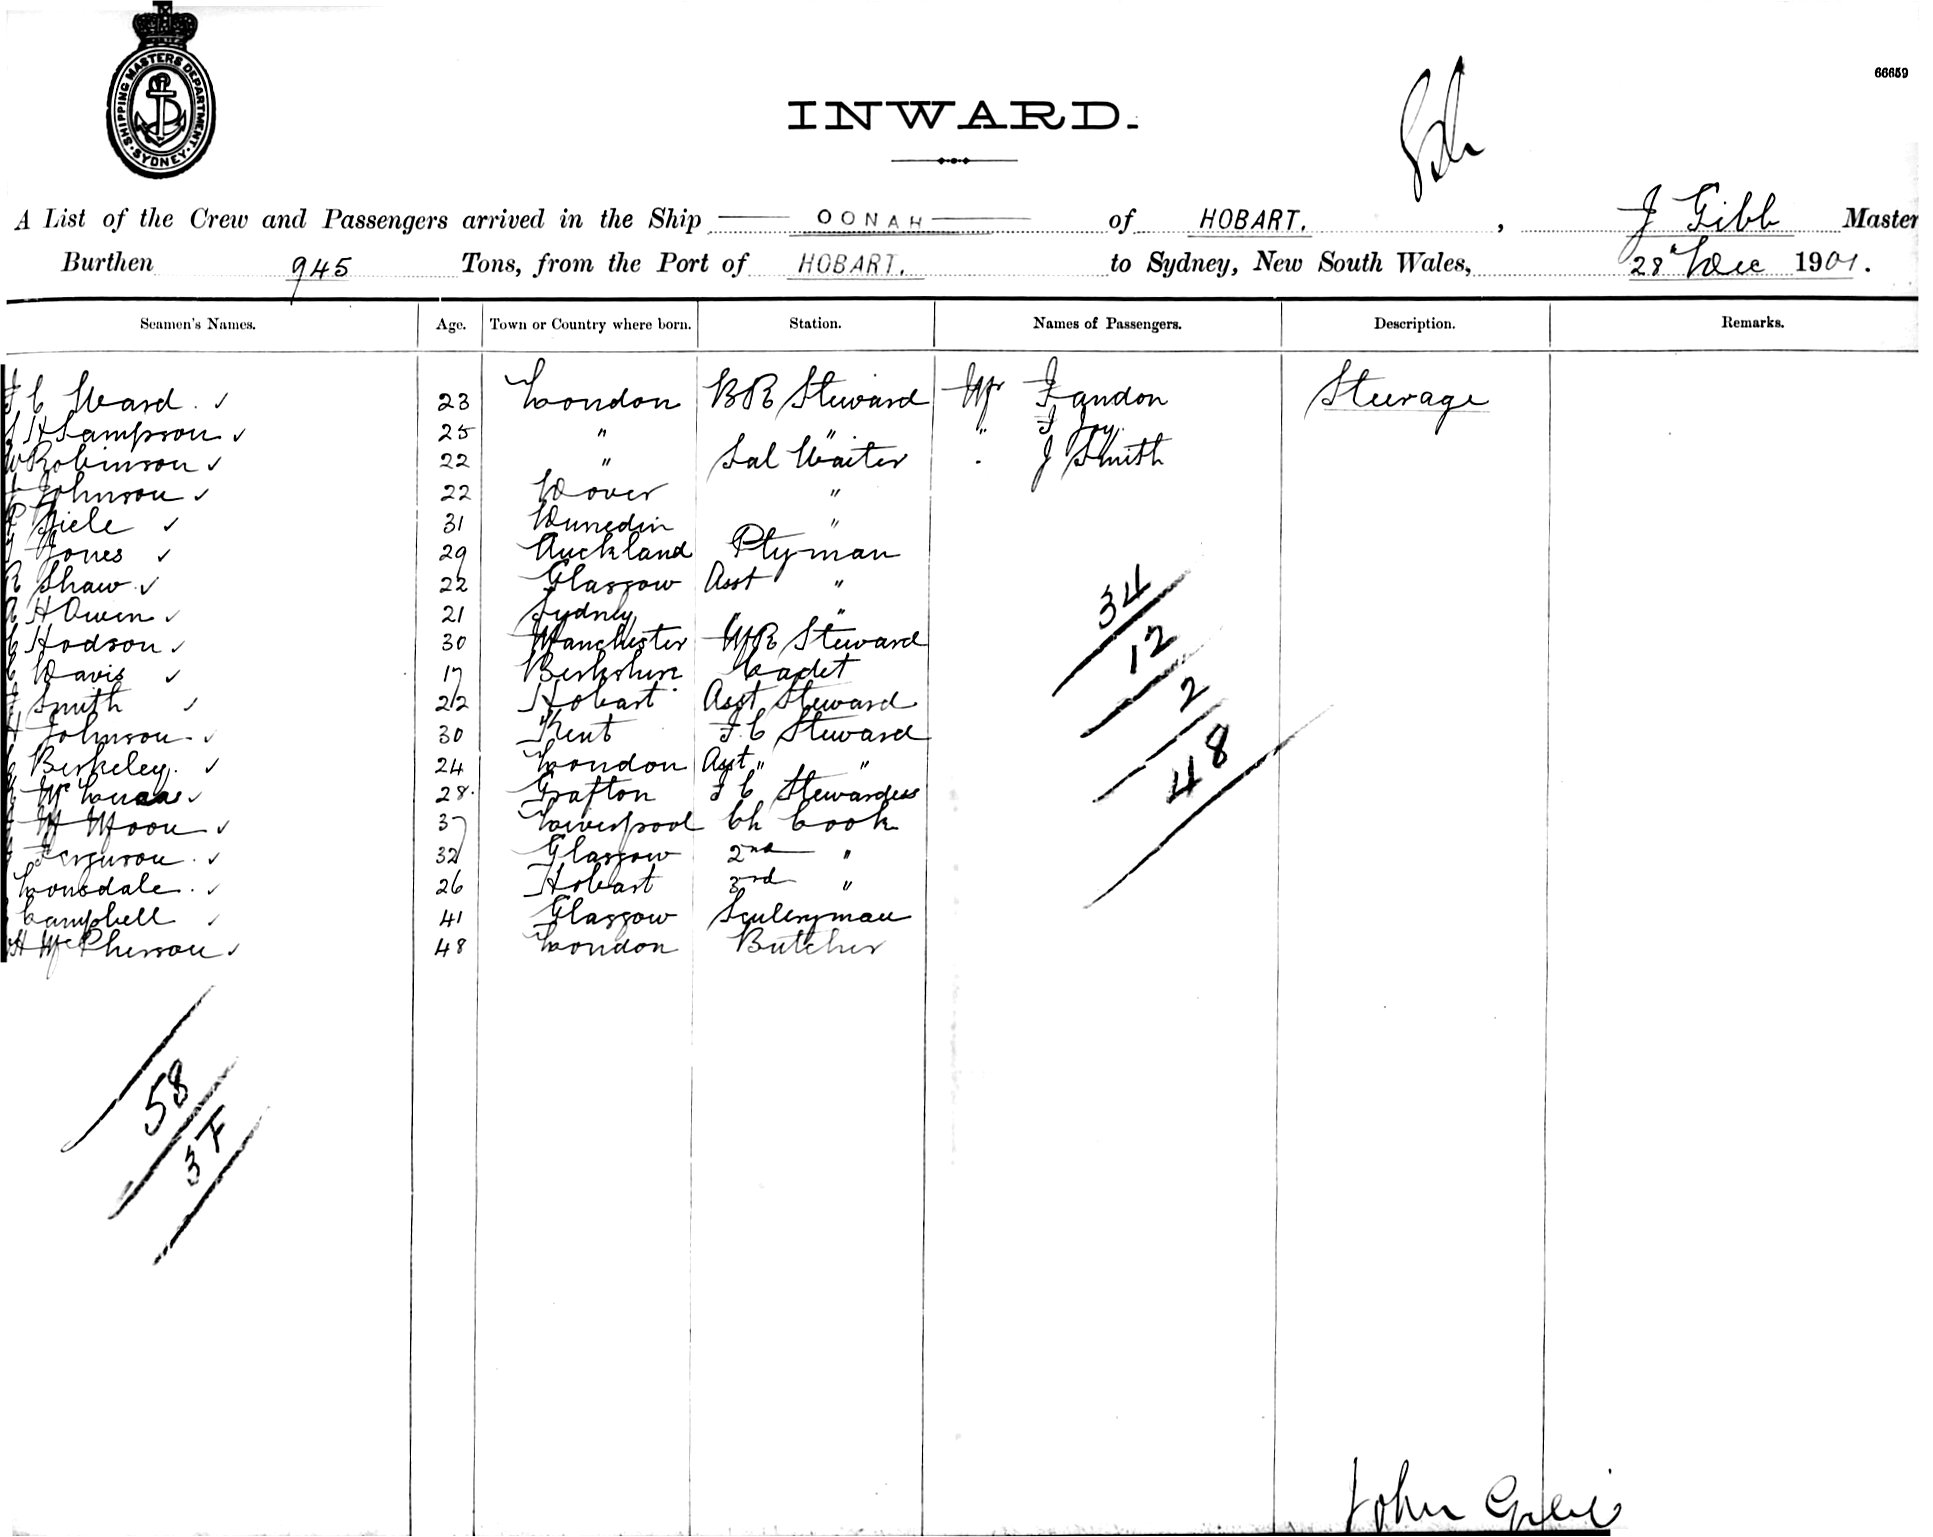 SHIPPING MASTERS DEPARTMENT. SYDNEY.
66659
INWARD.
A List of the Crew and Passengers arrived in the Ship OONAH of HOBART. , J Gibb Master
Burthen 945 Tons, from the Port of HOBART. to Sydney, New South Wales, 28th Dec 1901.
Seamen's Names. Age. Town or Country where born. Station. Names of Passengers. Description. Remarks.
C Ward ✓ 23 London BR Steward Mr Landon Steerage
H Sampson ✓ 25 " " " J Joy
W Robinson ✓ 22 " Sal Waiter . J Smith
Johnson ✓ 22 Dover "
✓ 31 Dunedin "
Jones ✓ 29 Auckland Ptyman
R Shaw ✓ 22 Glasgow Asst "
H Owen ✓ 21 Sydney " "
C Hodson ✓ 30 Manchester MR Steward
Davis ✓ 17 Berkshire Cadet
Smith ✓ 22 Hobart Asst Steward
H Johnson ✓ 30 Kent F C Steward
Berkeley ✓ 24 London Asst " "
✓ 28 Grafton F C Stewardess
H Moon ✓ 37 Liverpool Ch Cook
Ferguson ✓ 32 Glasgow 2nd "
Lonsdale ✓ 26 Hobart 3rd "
Campbell ✓ 41 Glasgow Sculleryman
H McPherson ✓ 48 London Butcher
34
12
2
48
58
3 F
John